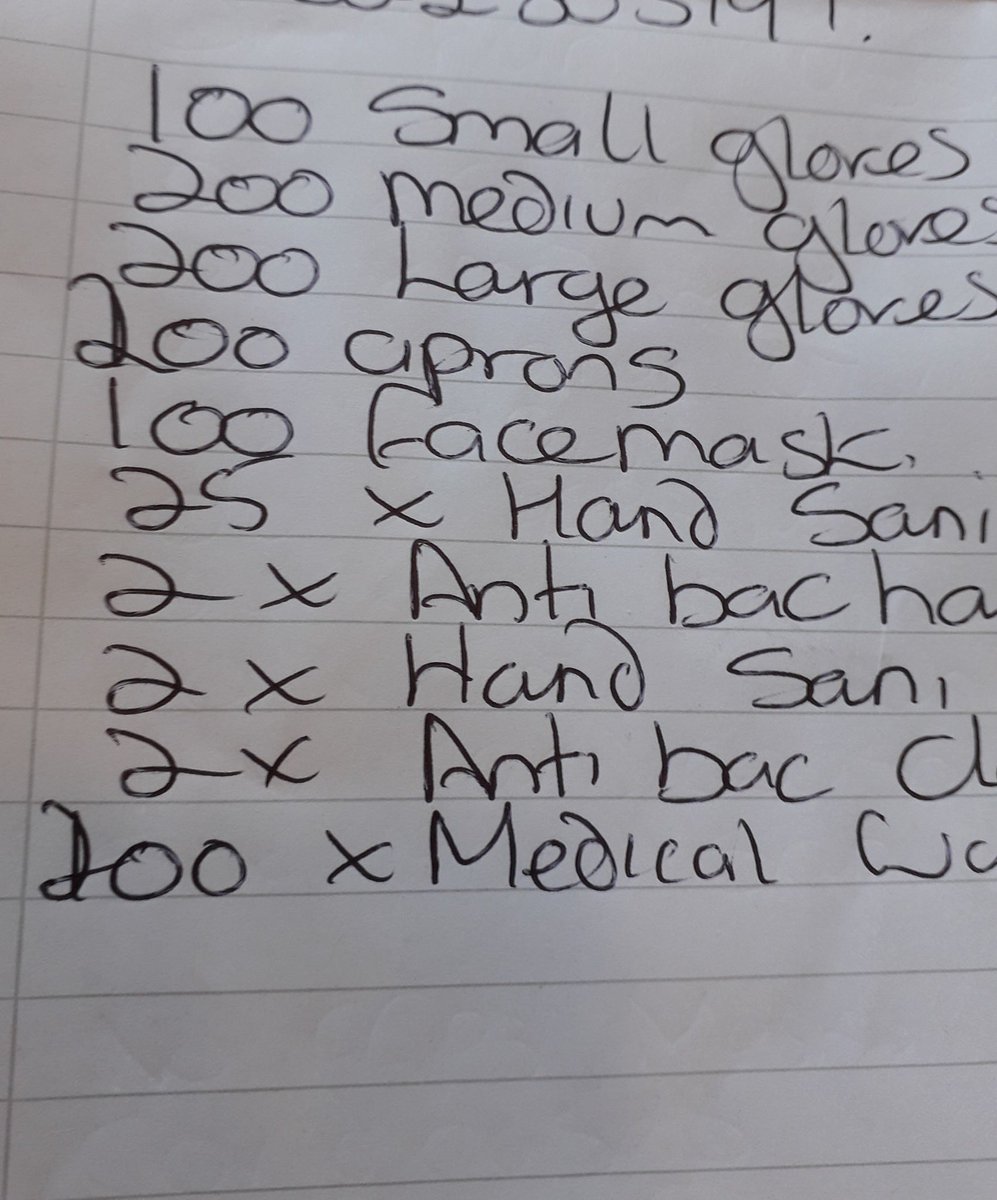 100 Small gloves
200 medium gloves
200 Large gloves
200 aprons
100 Facemask.
25 x Hand Sani
2 x Anti bac ha
2 x Hand Sani
2 x Anti bac
200 x Medical